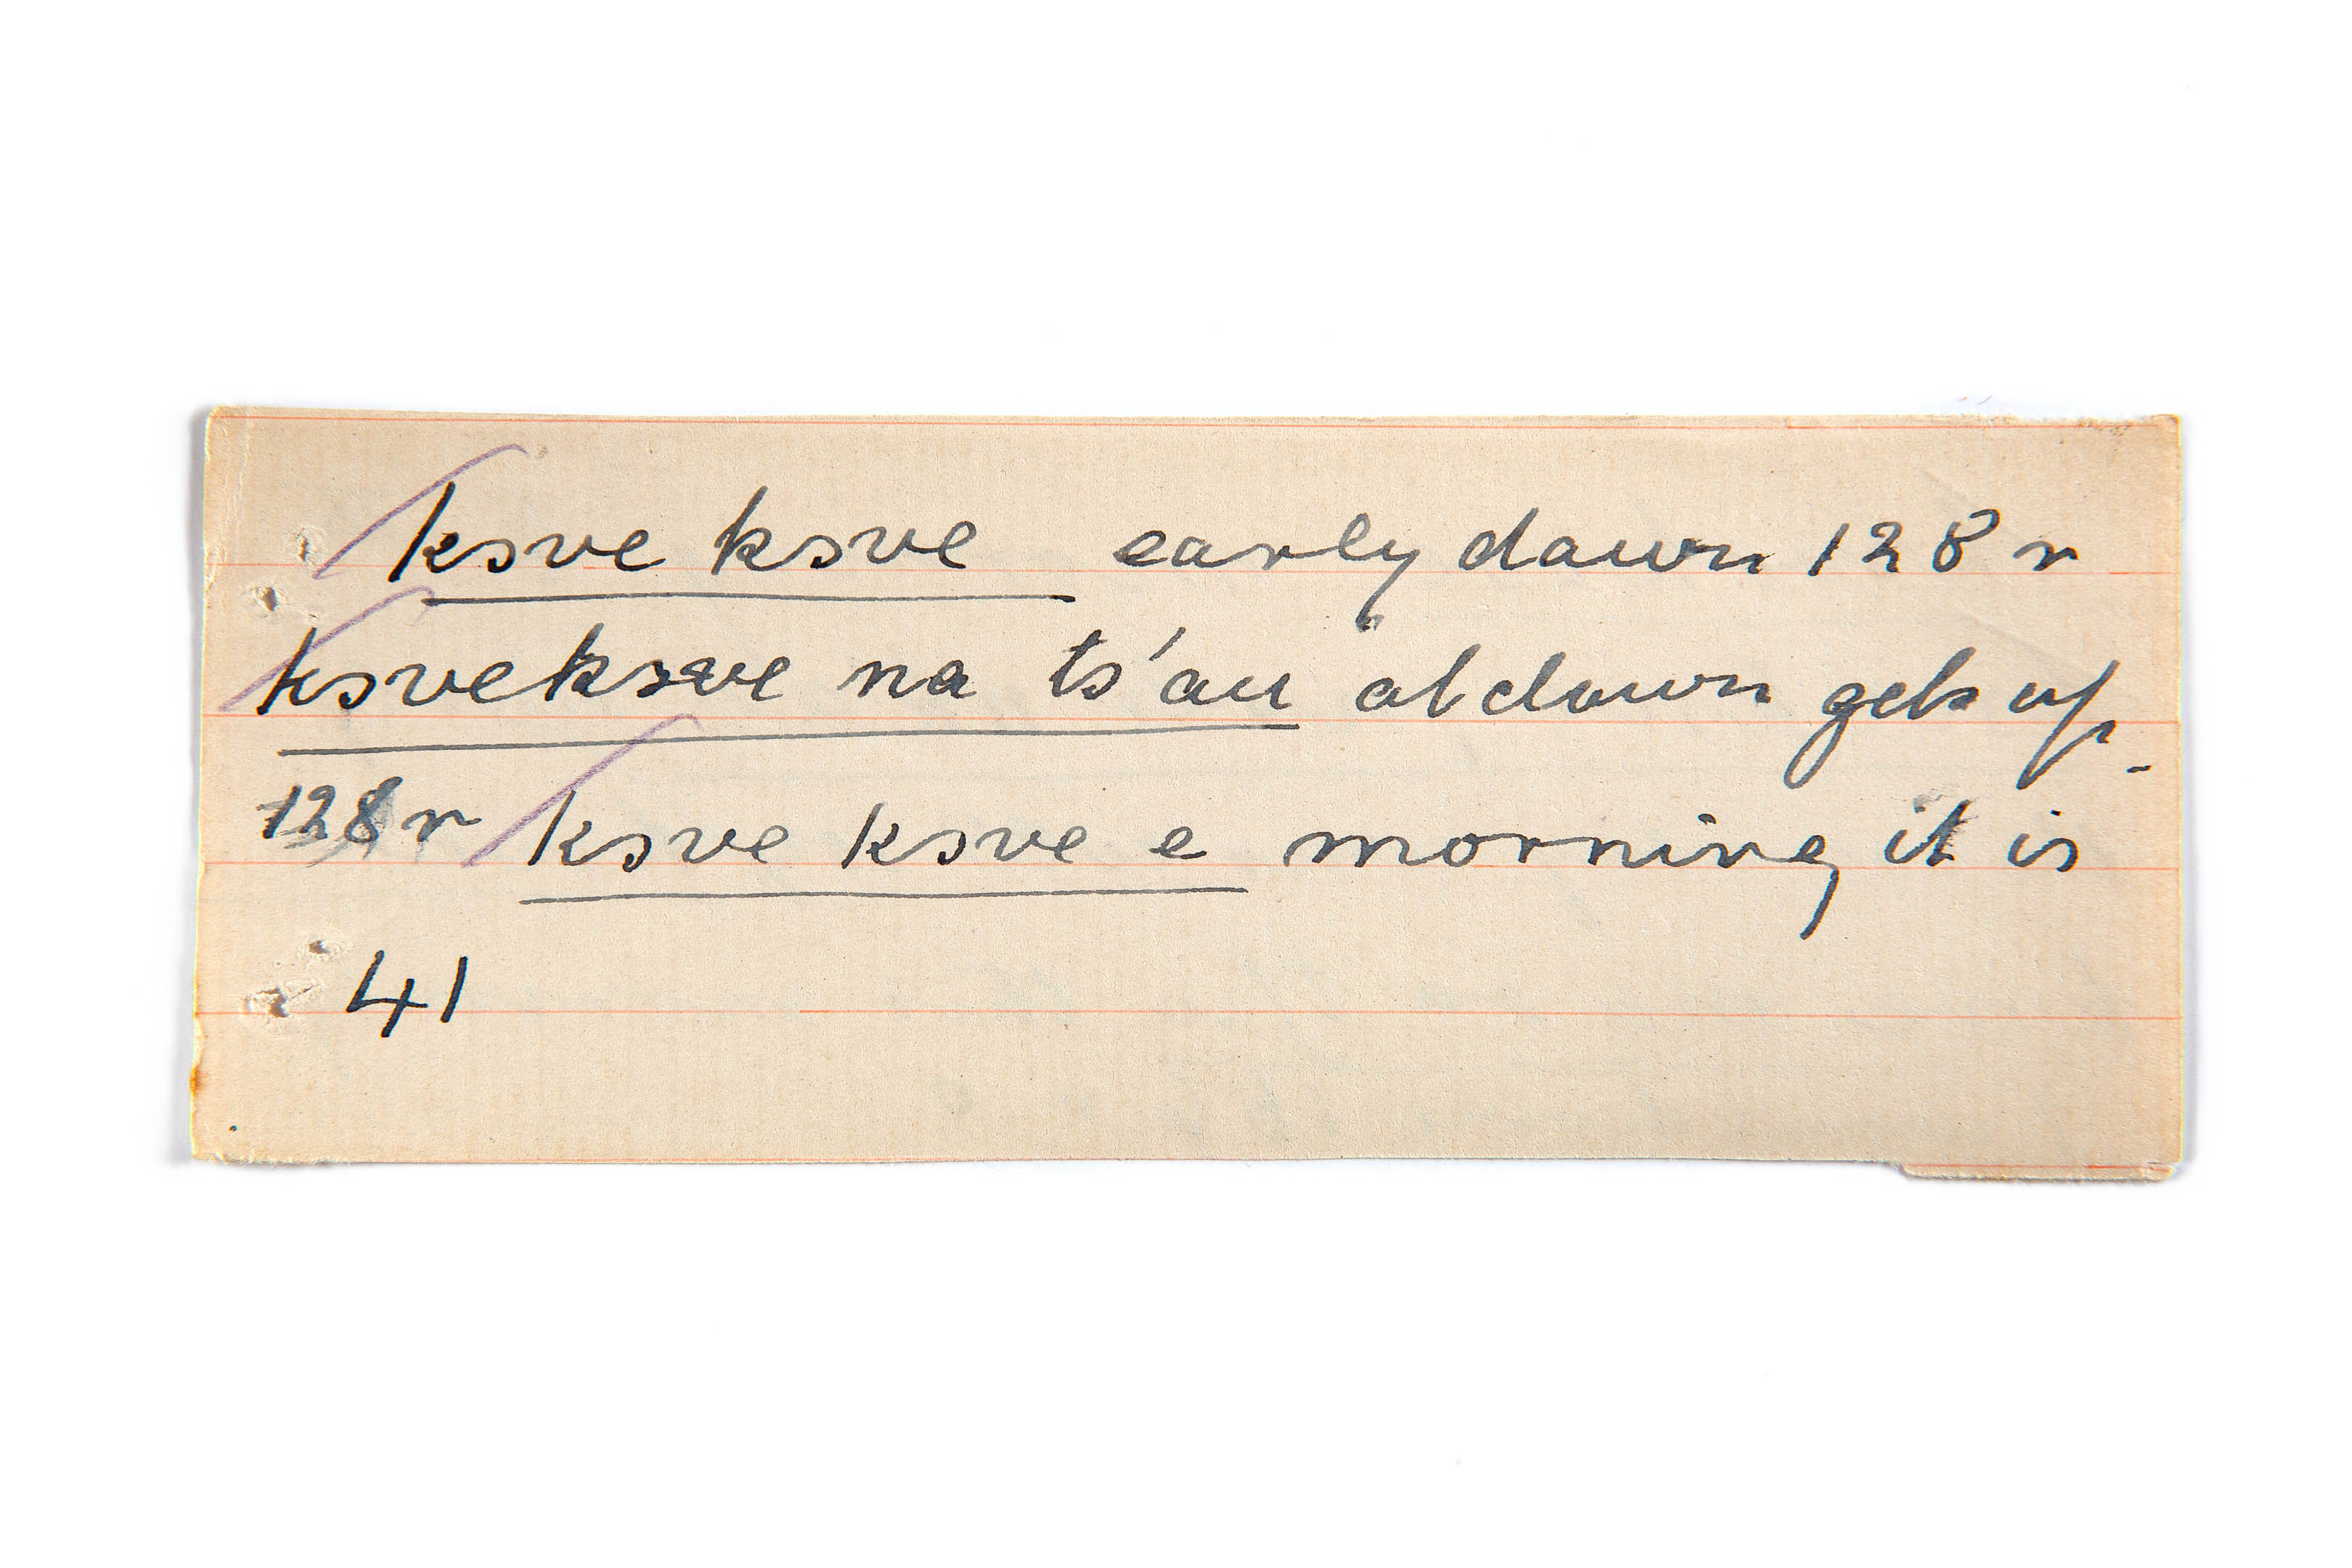 ksve ksve early dawn 128 r
ksveksve na ts'au at dawn gets up -
128 r ksve ksve e morning it is
41